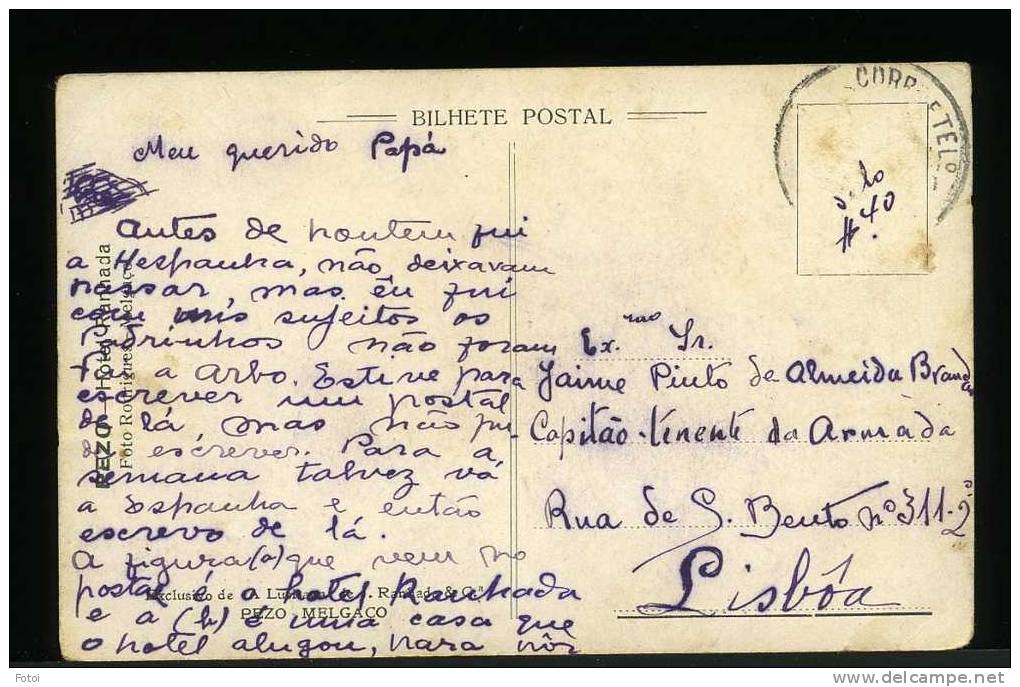 CORR TELº
BILHETE POSTAL
Meu querido Papá
#40
Antes de hontem fui
a Hespanha, não deixavam
passar, mas eu fui
com uns sujeitos os
Padrinhos não foram
a Arbo. Estive para
escrever um postal
de lá, mas não pu-
de escrever. Para a
semana talvez vá
a Espanha e então
escrevo de lá.
A figura (a) que vem no
postal é o hotel Ranhada
e a (b) é uma casa que
o hotel alugou, para nós
PEZO Hotel Ranhada
Foto Rodrigues Melgaço
Exclusivo de A. Ranhada & Cª
PEZO MELGAÇO
Ex.mo Sr.
Jaime Pinto de Almeida Brandão
Capitão-tenente da Armada
Rua de S. Bento nº 311-2º
Lisbôa
Fotoi
www.delcampe.net